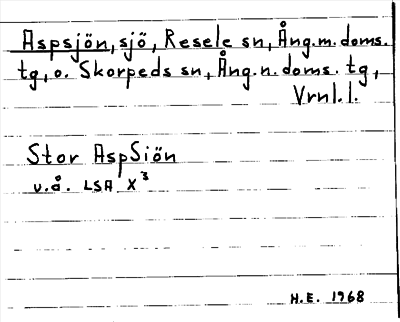 Aspsjön, sjö, Resele sn, Ång.m.doms.
tg, o. Skorpeds sn, Ång.n.doms. tg,
Vrnl.l.
Stor AspSiön
u.å. LSA X³
H.E. 1968